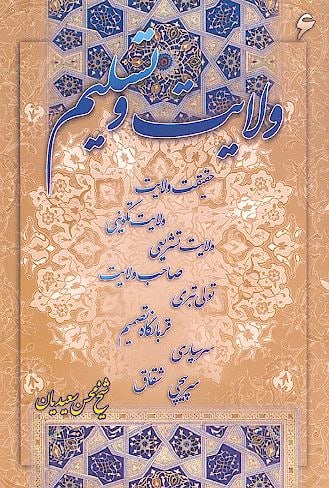 ۶
ولایت و تسلیم
حقیقت ولایت
ولایت تکوینی
ولایت تشریعی
صاحب ولایت
تولی تبری
قربانگاه تصمیم
سرسپاری
سرپیچی شقاق
شیخ محسن سعیدیان